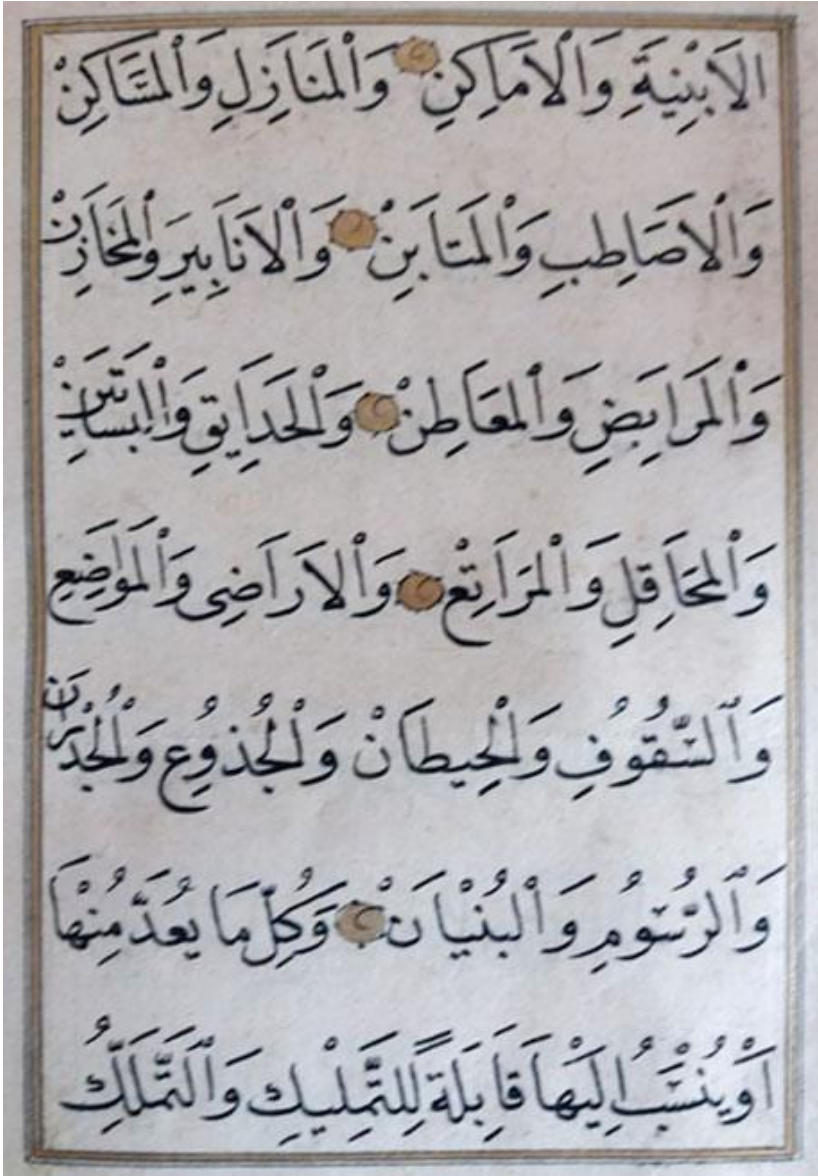 الَابْنِيَةِ وَالْاَمَاكِنِ وَالْمَنَازِلِ وَالْمَسَاكِنْ
وَالْاَصَاطِبِ وَالْمَتَابِنْ وَالْاَنَابِيرِ وَالْمَخَازِنْ
وَالْمَرَابِضِ وَالْمَعَاطِنْ وَالْحَدَايِقِ وَالْبَسَاتِينْ
وَالْمَحَاقِلِ وَالْمَرَاتِعْ وَالْاَرَاضِى وَالْمَوَاضِعِ
وَالسُّقُوفِ وَالْحِيطَانْ وَالْجُذُوعِ وَالْجُدْرَانْ
وَالرُّسُومِ وَالْبُنْيَانْ وَكُلِّ مَا يُعَدُّ مِنْهَا
اَوْ يُنْسَبُ اِلَيْهَا قَابِلَةً لِلتَّمْلِيكِ وَالتَّمَلُّكِ